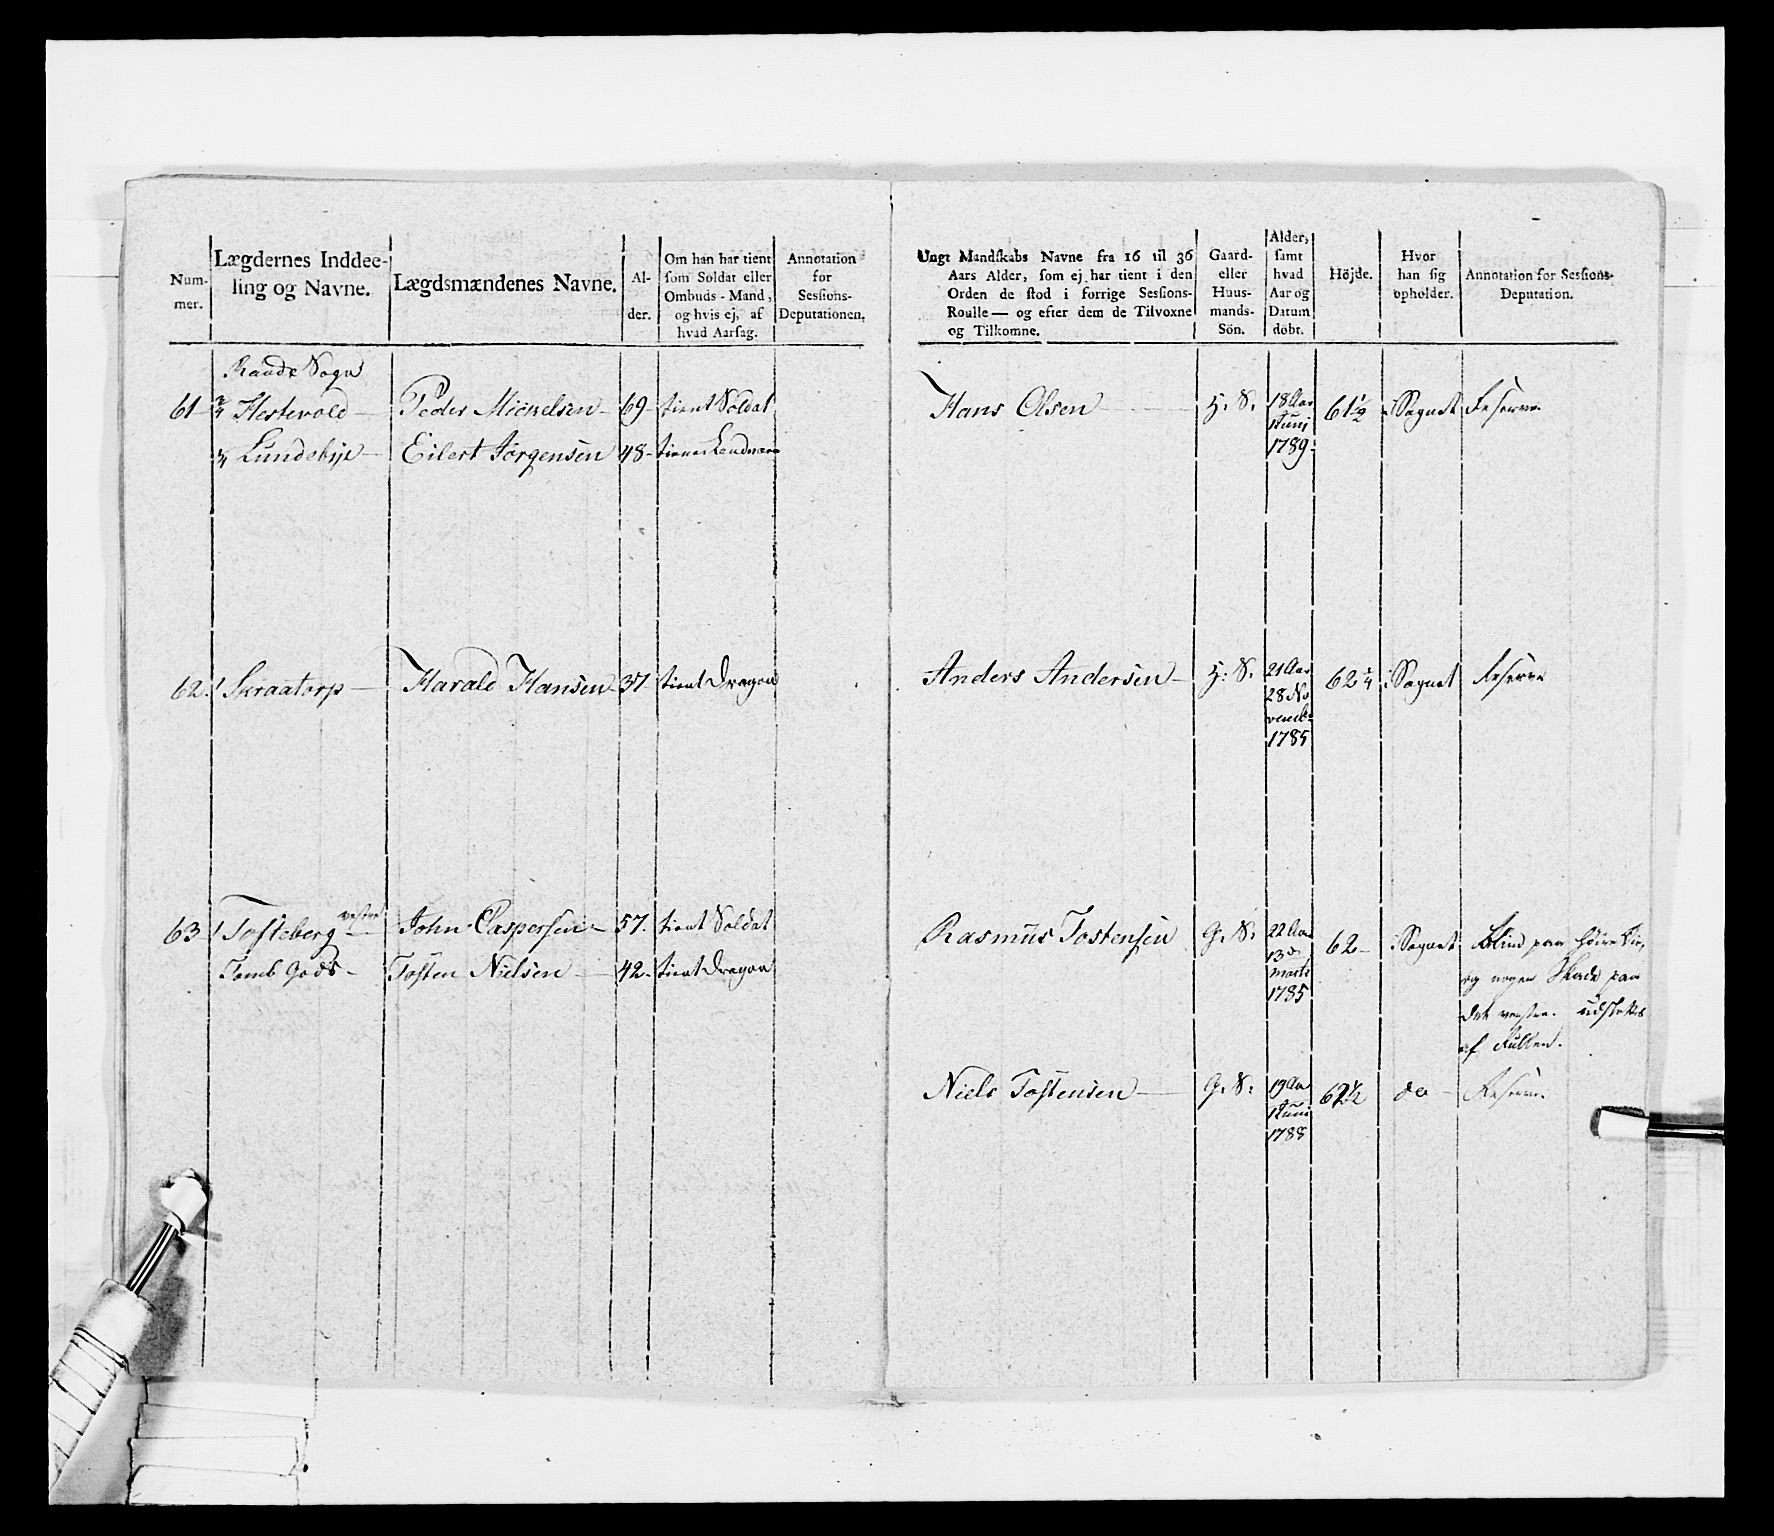 Num-
mer.
Lægdernes Inddee-
ling og Navne.
Lægdsmændenes Navne.
Al-
der.
Om han har tient
som Soldat eller
Ombuds-Mand,
og hvis ej, af
hvad Aarsag.
Annotation
for
Sessions-
Deputationen.
Ungt Mandskabs Navne fra 16 til 36
Aars Alder, som ej har tient i den
Orden de stod i forrige Sessions-
Roulle — og efter dem de Tilvoxne
og Tilkomne.
Gaard-
eller
Huus-
mands-
Sön.
Alder,
samt
hvad
Aar og
Datum
döbt.
Höjde.
Hvor
han sig
opholder.
Annotation for Sessions-
Deputation.
Raade Sogn
61 Hestevold — Peder Mickelsen 69 tient Soldat
Lundebye — Eilert Jørgensen 48
Hans Olsen H. S. 18 Aar 1 Juni 1789 61 1/2 i Sognet Reserve
62 1 Skraatorp — Harald Hansen 37 tient Dragon
Anders Andersen — H. S. 21 Aar 28 November 1785 62 1/4 i Sognet Reserve
63 1 Tofteberg vestre John Caspersen 57 tient Soldat
Tomb Gods — Tosten Nielsen 42 tient Dragon
Rasmus Tostensen G. S. 22 Aar 13de Marti 1785 62 i Sognet Blind paa høire
og nogen Skade paa
det venstre. udslettes
af Rullen.
Niels Tostensen — G. S. 19 Aar 1 Juni 1788 62 1/2 do — Reserve